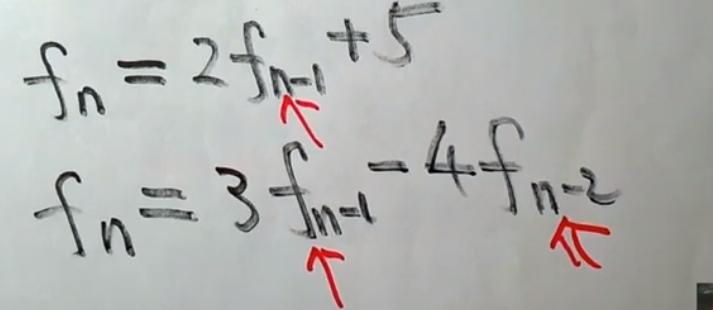 fₙ = 2fₙ₋₁ + 5
fₙ = 3fₙ₋₁ - 4fₙ₋₂